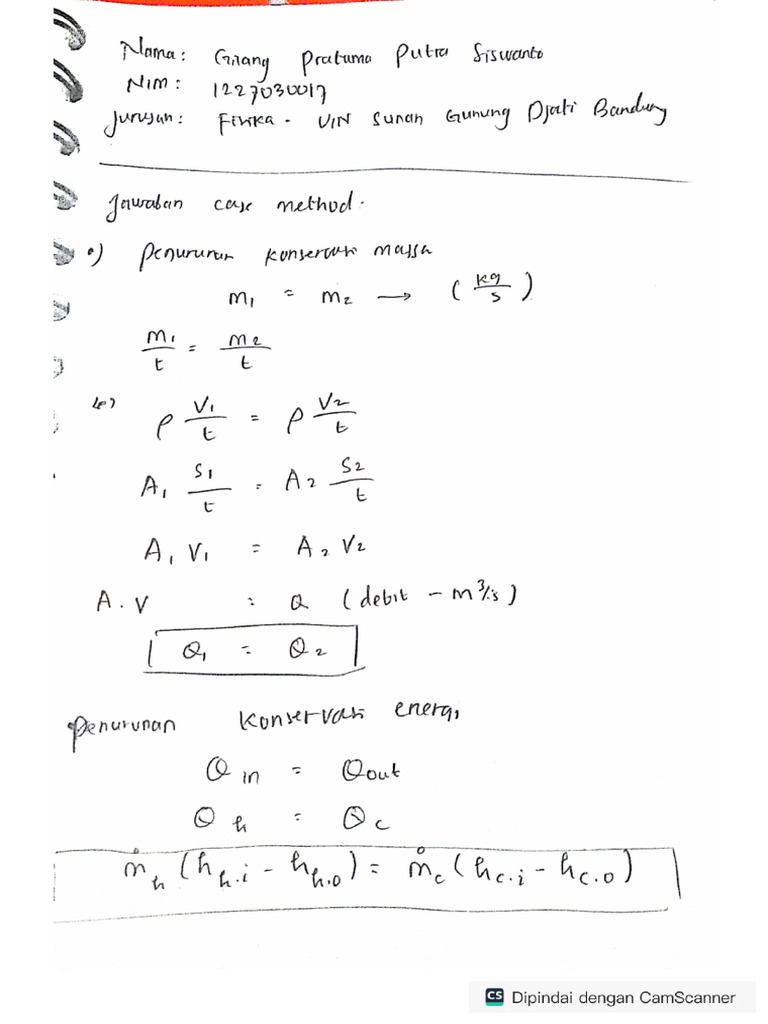 Nama: Gilang Pratama Putra Siswanto
Nim: 1227030017
Jurusan: Fisika - UIN Sunan Gunung Djati Bandung
Jawaban case method.
•) Penurunan konservasi massa
m₁ = m₂ → (kg/s)
m₁/t = m₂/t
ρ V₁/t = ρ V₂/t
A₁ S₁/t = A₂ S₂/t
A₁ V₁ = A₂ V₂
A.V = Q (debit - m³/s)
Q₁ = Q₂
Penurunan Konservasi energi
Q in = Qout
Q h = Q c
ṁh (hh.i - hh.o) = ṁc (hc.i - hc.o)
CS Dipindai dengan CamScanner